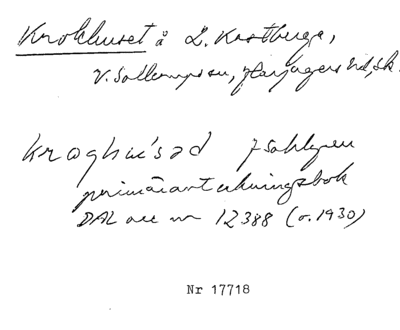 Krokhuset å L. Kastberga,
V. Sallerups sn, Harjagers hd, Sk.
kroghus'ad J Sahlgren
primäranteckningsbok
DAL acc nr 12388 (o. 1930)
Nr 17718